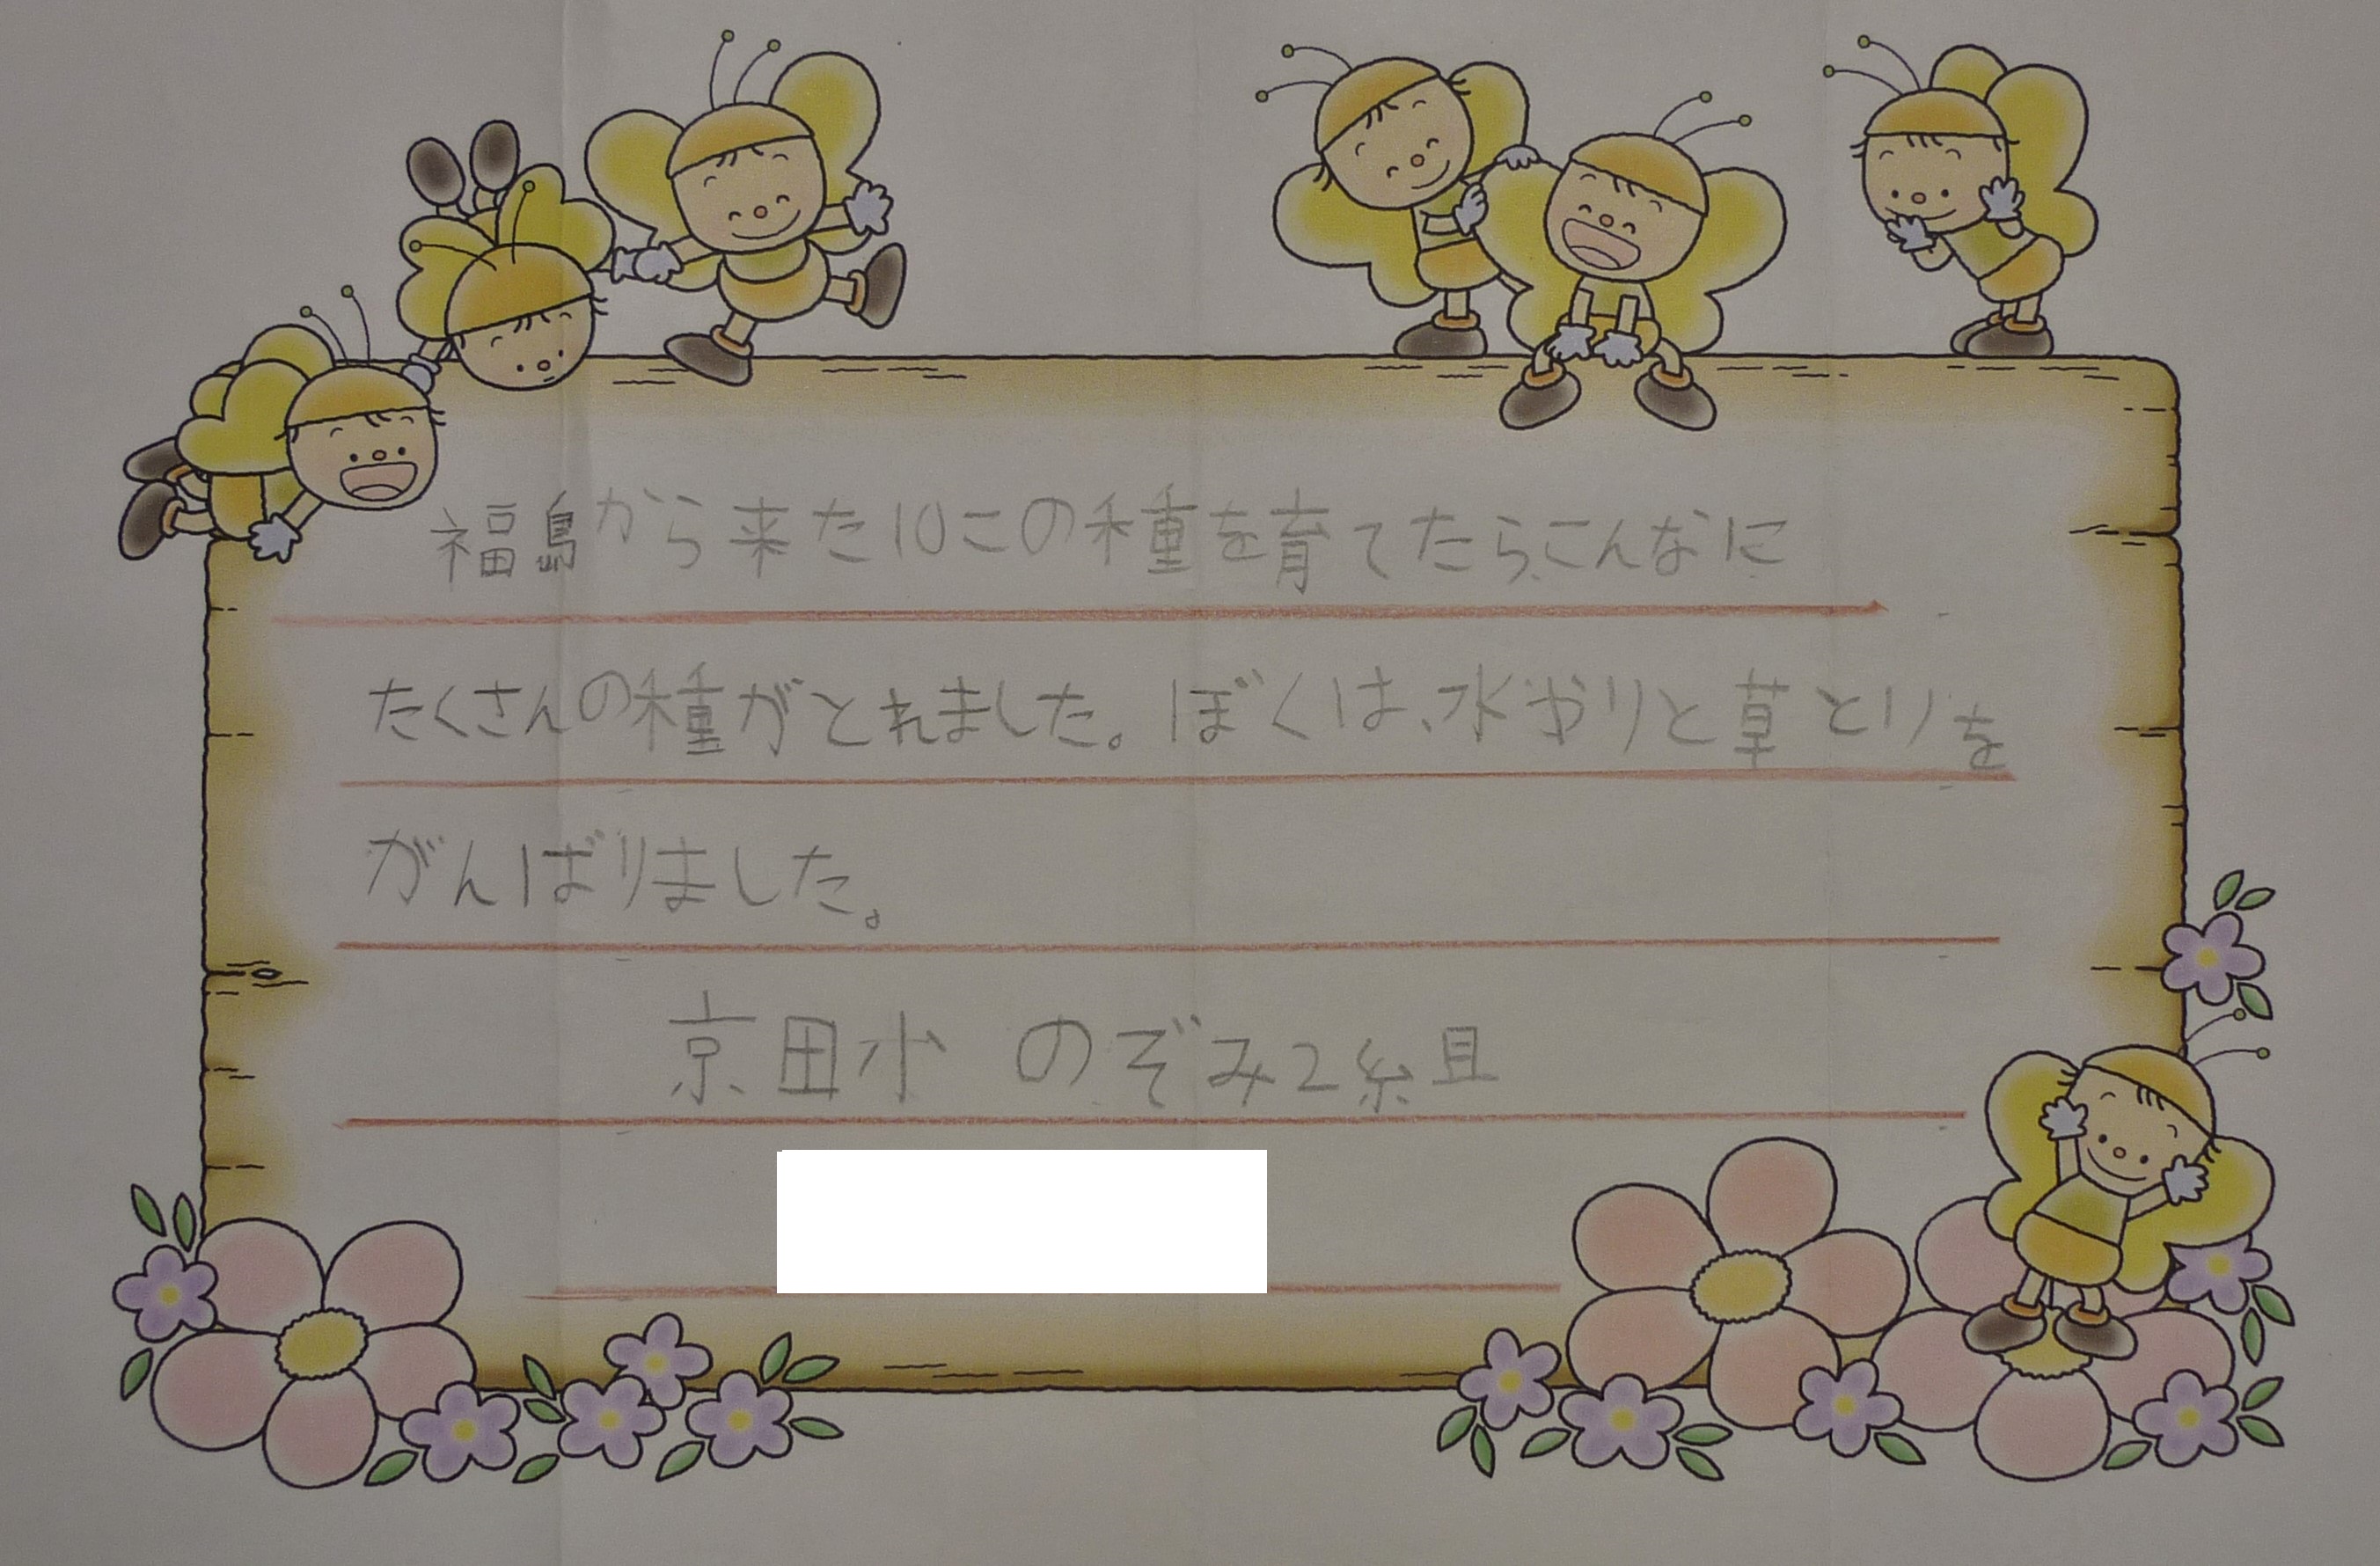 福島から来た10この種を育てたら、こんなに
たくさんの種がとれました。ぼくは、水やりと草とりを
がんばりました。
京田小 のぞみ2組